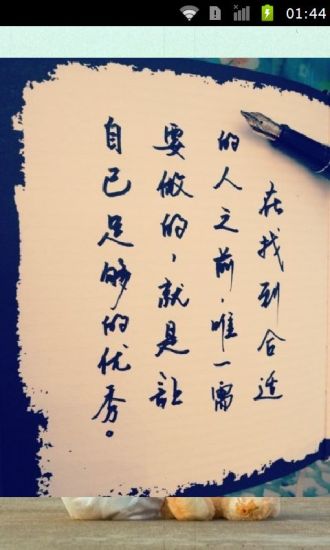 01:44
在找到合适
的人之前，唯一需
要做的，就是让
自己足够的优秀。